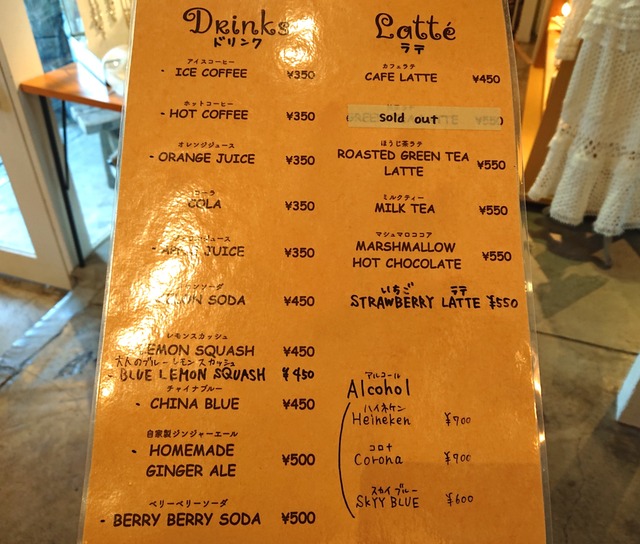 Drinks
ドリンク
アイスコーヒー
- ICE COFFEE ¥350
ホットコーヒー
- HOT COFFEE ¥350
オレンジジュース
- ORANGE JUICE ¥350
コーラ
COLA ¥350
JUICE ¥350
SODA ¥450
レモンスカッシュ
LEMON SQUASH ¥450
大人のブルーレモンスカッシュ
- BLUE LEMON SQUASH ¥450
チャイナブルー
- CHINA BLUE ¥450
自家製ジンジャーエール
- HOMEMADE
GINGER ALE ¥500
ベリーベリーソーダ
- BERRY BERRY SODA ¥500
Latté
ラテ
カフェラテ
CAFE LATTE ¥450
sold out
ほうじ茶ラテ
ROASTED GREEN TEA
LATTE ¥550
ミルクティー
MILK TEA ¥550
マシュマロココア
MARSHMALLOW
HOT CHOCOLATE ¥550
いちご ラテ
STRAWBERRY LATTE ¥550
アルコール
Alcohol
ハイネケン
Heineken ¥700
コロナ
Corona ¥700
スカイブルー
SKYY BLUE ¥600